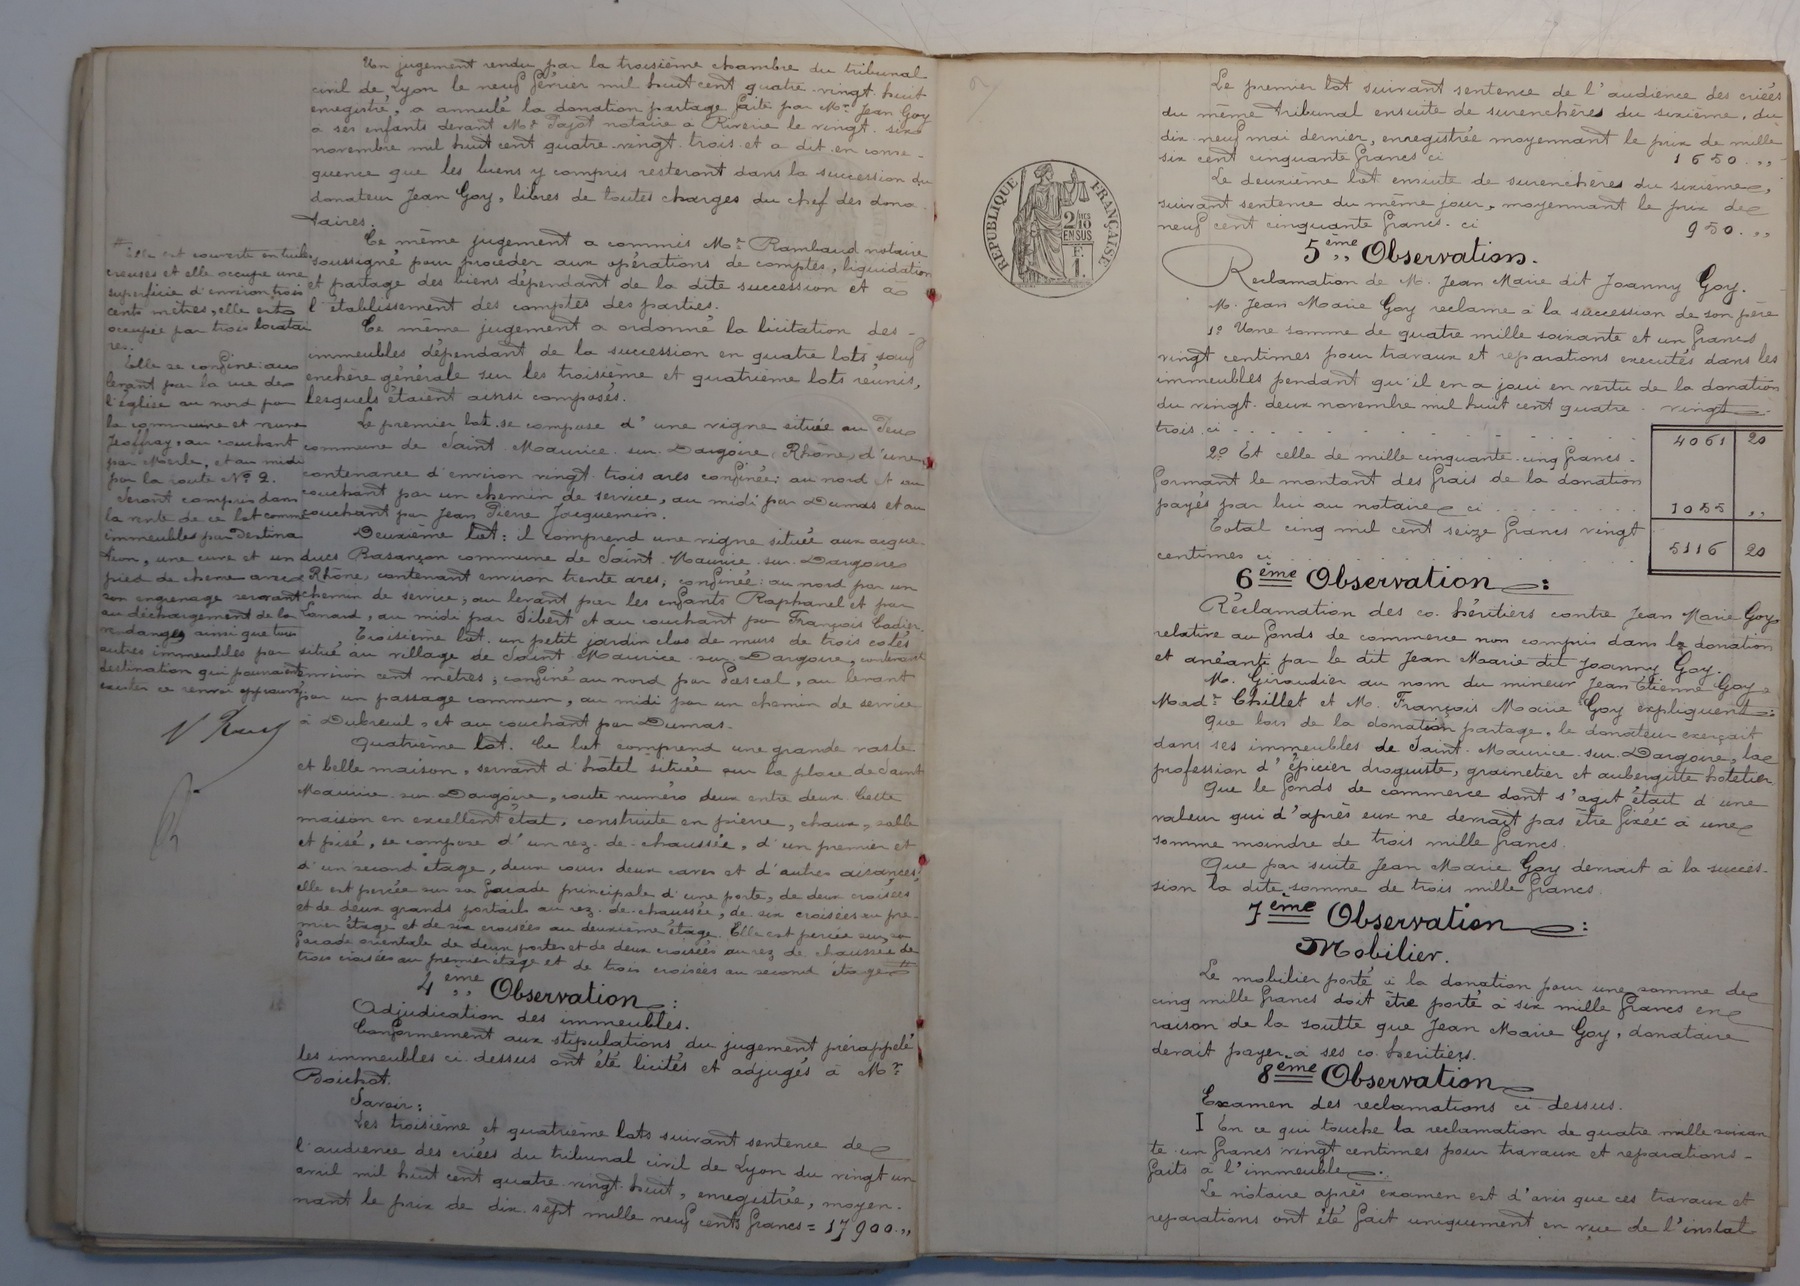 Un jugement rendu par la troisième chambre du tribunal
civil de Lyon le neuf février mil huit cent quatre-vingt-huit
enregistré, a annulé la donation partage faite par Mr Jean Goy
a ses enfants devant Me Pajot notaire a Riverie le vingt-six
novembre mil huit cent quatre-vingt-trois et a dit en consé-
quence que les biens y compris resteront dans la succession du
donateur Jean Goy, libres de toutes charges du chef des dona-
taires.
Ce même jugement a commis Me Rambaud notaire
soussigné pour procéder aux opérations de comptes, liquidation
et partage des biens dépendant de la dite succession et à
l'établissement des comptes des parties.
Ce même jugement a ordonné la licitation des
immeubles dépendant de la succession en quatre lots sauf
enchère générale sur les troisième et quatrième lots réunis,
lesquels étaient ainsi composés.
Le premier lot se compose d'une vigne située au
commune de Saint-Maurice-sur-Dargoire (Rhône) d'une
contenance d'environ vingt-trois ares confinée: au nord et au
couchant par un chemin de service, au midi par Dumas et au
couchant par Jean Pierre Jacquemin.
Deuxième lot: il comprend une vigne située aux aque-
ducs Basançon commune de Saint-Maurice-sur-Dargoire
Rhône, contenant environ trente ares; confinée: au nord par un
chemin de service; au levant par les enfants Raphanel et par
, au midi par Sibert et au couchant par François Cadier.
Troisième lot. un petit jardin clos de murs de trois cotés
situé au village de Saint Maurice-sur-Dargoire, contenant
environ cent mètres; confiné au nord par Pascal, au levant
par un passage commun, au midi par un chemin de service
à Dubreuil, et au couchant par Dumas.
Quatrième lot. Ce lot comprend une grande vaste
et belle maison, servant d'hôtel située sur la place de Saint
Maurice-sur-Dargoire, route numéro deux entre deux. Cette
maison en excellent état, construite en pierre, chaux, sable
et pisé, se compose d'un rez-de-chaussée, d'un premier et
d'un second étage, deux cours deux caves et d'autres aisances,
elle est percée sur sa façade principale d'une porte, de deux croisées
et de deux grands portails au rez-de-chaussée, de six croisées au pre-
mier étage et de six croisées au deuxième étage. Elle est percée sur sa
façade orientale de deux portes et de deux croisées au rez de chaussée de
trois croisées au premier étage et de trois croisées au second étage
4ème Observation:
Adjudication des immeubles.
Conformément aux stipulations du jugement prérappelé
les immeubles ci-dessus ont été licités et adjugés à Mr
Boichot.
Savoir:
Les troisième et quatrième lots suivant sentence de
l'audience des criées du tribunal civil de Lyon du vingt un
avril mil huit cent quatre-vingt-huit, enregistrée, moyen-
nant le prix de dix-sept mille neuf cents francs = 17900 „
Elle est couverte en tuiles
creuses et elle occupe une
superficie d'environ trois
cents mètres, elle est
occupée par trois locatai
res.
Elle se confine: au
levant par la rue de
l'église au nord par
la commune et veuve
Jeoffray, au couchant
par Merle, et au midi
par la route No 2.
Seront compris dans
la vente de ce lot comme
immeubles par destina
tion, une cuve et un
pied de chène avec
son engrenage servant
au déchargement de la
vendanges ainsi que tous
autres immeubles par
destination qui pourraient
exister ce renvoi approuvé
RÉPUBLIQUE FRANÇAISE
2/10
EN SUS
F.
1.
Le premier lot suivant sentence de l'audience des criées
du même tribunal ensuite de surenchères du sixième, du
dix-neuf mai dernier, enregistrée moyennant le prix de mille
six cent cinquante francs ci 1650 „
Le deuxième lot ensuite de surenchères du sixième,
suivant sentence du même jour, moyennant le prix de
neuf cent cinquante francs. ci 950 „
5ème Observation.
Reclamation de M. Jean Marie dit Joanny Goy.
M. Jean Marie Goy reclame à la succession de son père
1o Une somme de quatre mille soixante et un francs
vingt centimes pour travaux et reparations executés dans les
immeubles pendant qu'il en a joui en vertu de la donation
du vingt-deux novembre mil huit cent quatre-vingt-
trois. ci 4061 20
2o Et celle de mille cinquante-cinq francs.
formant le montant des frais de la donation
payés par lui au notaire ci 1055 „
Total cinq mil cent seize francs vingt
centimes ci 5116 20
6ème Observation:
Réclamation des co-héritiers contre Jean Marie Goy
relative au fonds de commerce non compris dans la donation
et anéanti par le dit Jean Marie dit Joanny Goy.
M. Giroudier au nom du mineur Jean Etienne Goy,
Made Chillet et M. François Marie Goy expliquent:
Que lors de la donation partage, le donateur exerçait
dans ses immeubles de Saint-Maurice-sur-Dargoire, la
profession d'épicier droguiste, grainetier et aubergiste hotelier
Que le fonds de commerce dont s'agit était d'une
valeur qui d'après eux ne devrait pas être fixée à une
somme moindre de trois mille francs.
Que par suite Jean Marie Goy devrait à la succès-
sion la dite somme de trois mille francs.
7ème Observation:
Mobilier.
Le mobilier porté à la donation pour une somme de
cinq mille francs doit être porté à six mille francs en
raison de la soutte que Jean Marie Goy, donataire
devait payer à ses co-heritiers.
8ème Observation
Examen des reclamations ci-dessus.
I En ce qui touche la reclamation de quatre mille soixan
te-un francs vingt centimes pour travaux et reparations-
faits à l'immeuble.
Le notaire après examen est d'avis que ces travaux et
reparations ont été fait uniquement en vue de l'instal